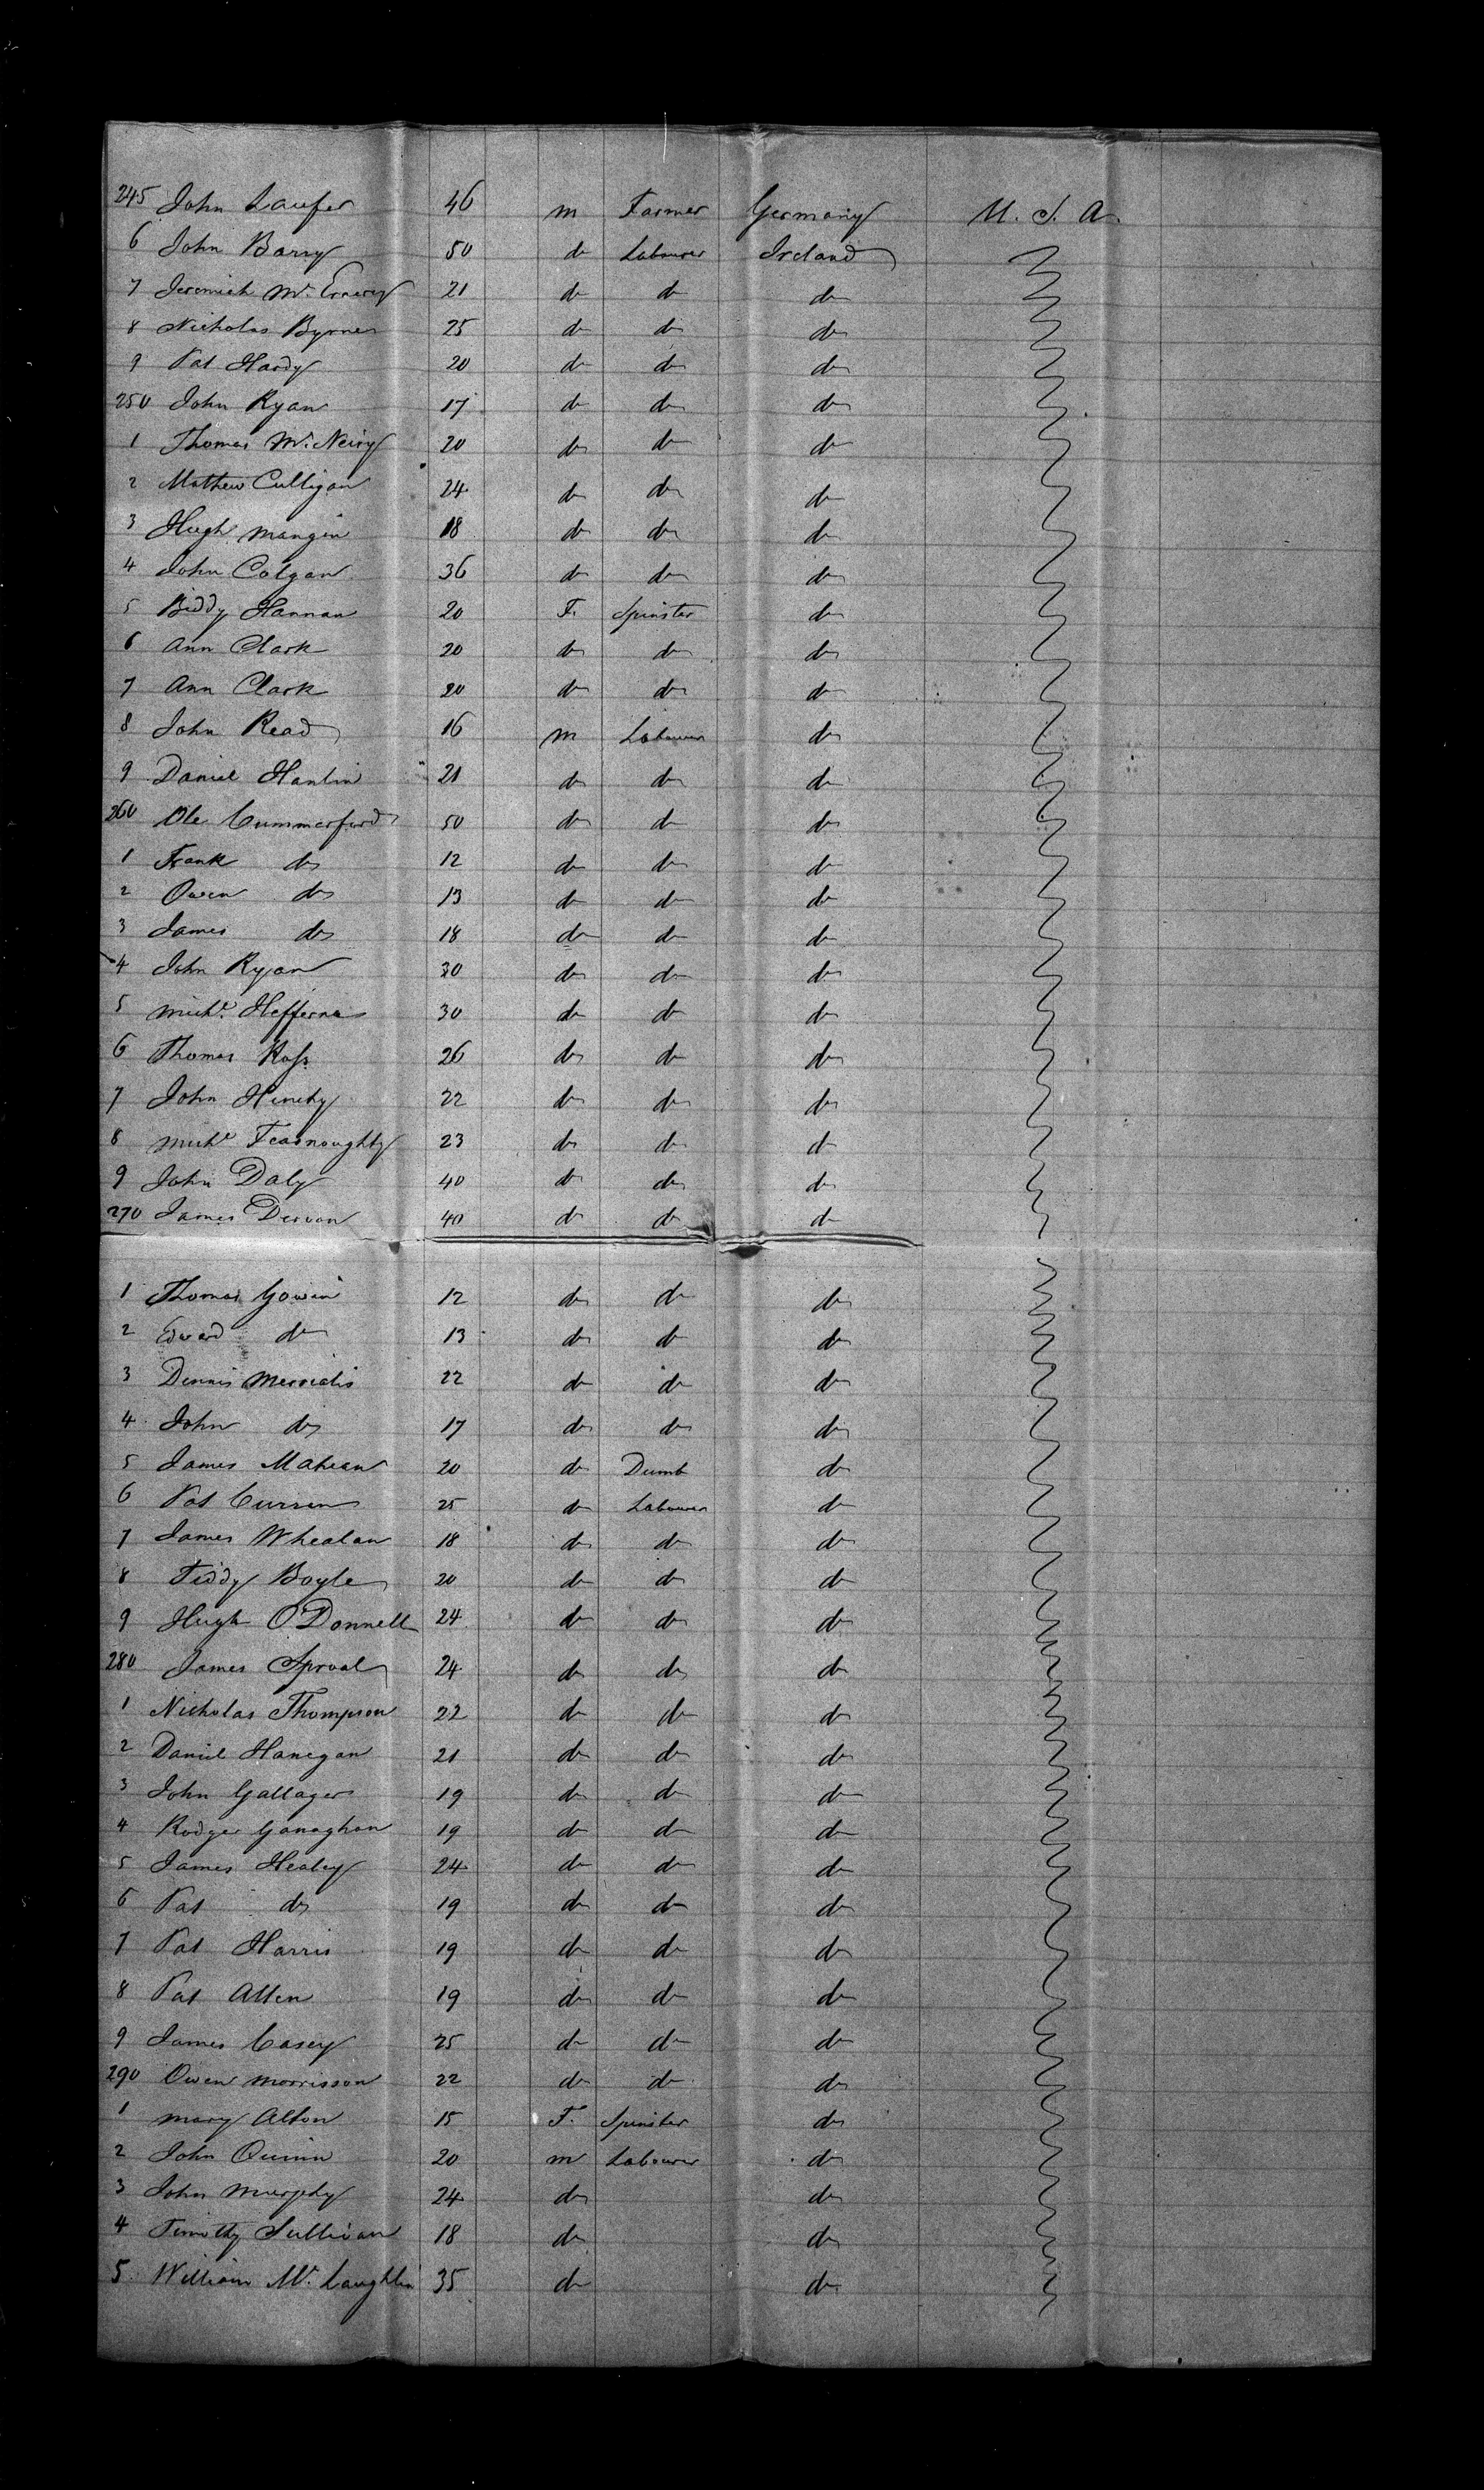 245 John Laufer 46 m Farmer Germany U. S. A.
6 John Barry 50 do Labourer Ireland
7 Jeremiah Mc Enerey 21 do do do
8 Nicholas Byrne 25 do do do
9 Pat Hardy 20 do do do
250 John Ryan 17 do do do
1 Thomas Mc Neiry 20 do do do
2 Mathew Culligan 24 do do do
3 Hugh Mangin 18 do do do
4 John Colgan 36 do do do
5 Biddy Hannan 20 F. Spinster do
6 Ann Clark 20 do do do
7 Ann Clark 20 do do do
8 John Read 16 m Labourer do
9 Daniel Hanlin 21 do do do
260 Ole Cummerford 50 do do do
1 Frank do 12 do do do
2 Owen do 13 do do do
3 James do 18 do do do
4 John Ryan 30 do do do
5 Michl. Heffernan 30 do do do
6 Thomas Ross 26 do do do
7 John Hinchy 22 do do do
8 Michl Fearnoughty 23 do do do
9 John Daly 40 do do do
270 James Dervan 40 do do do
1 Thomas Gowin 12 do do do
2 Edward do 13 do do do
3 Dennis 22 do do do
4 John do 17 do do do
5 James Mahean 20 do Dumb do
6 Pat Curren 25 do Labourer do
7 James Whealan 18 do do do
8 Teddy Boyle 20 do do do
9 Hugh O'Donnell 24 do do do
280 James Sproal 24 do do do
1 Nicholas Thompson 22 do do do
2 Daniel Hanegan 21 do do do
3 John Gallager 19 do do do
4 Rodger Ganaghan 19 do do do
5 James Healey 24 do do do
6 Pat do 19 do do do
7 Pat Harris 19 do do do
8 Pat Allen 19 do do do
9 James Casey 25 do do do
290 Owen Morrisson 22 do do do
1 Mary Alton 15 F. Spinster do
2 John Quinn 20 m Labourer do
3 John Murphy 24 do do
4 Timothy Sullivan 18 do do
5 William Mc Laughlin 35 do do